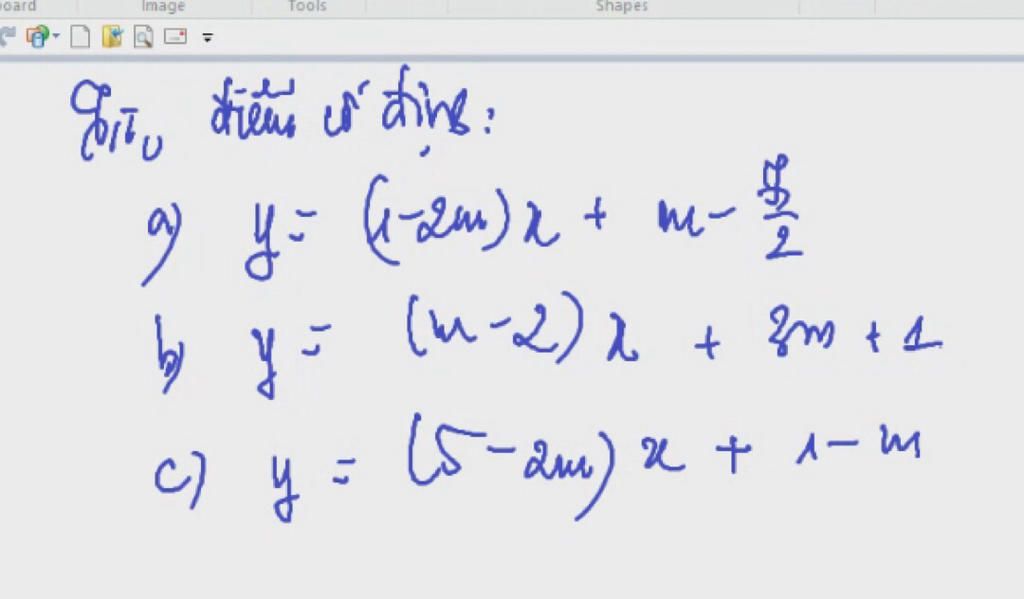 board Image Tools Shapes
điểm cố định:
a) y = (1-2m)x + m -
b) y = (m-2)x + 3m + 1
c) y = (5-2m)x + 1-m